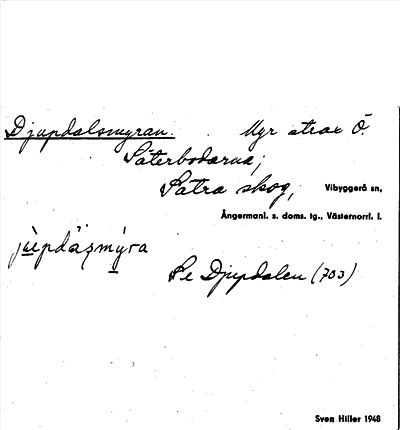 Djupdalsmyran. Myr strax Ö.
Säterbodarna;
Sätra skog, Vibyggerå sn,
Ångermanl. s. doms. tg., Västernorrl. l.
jùpdàʂmýra
Se Djupdalen (703)
Sven Hiller 1948